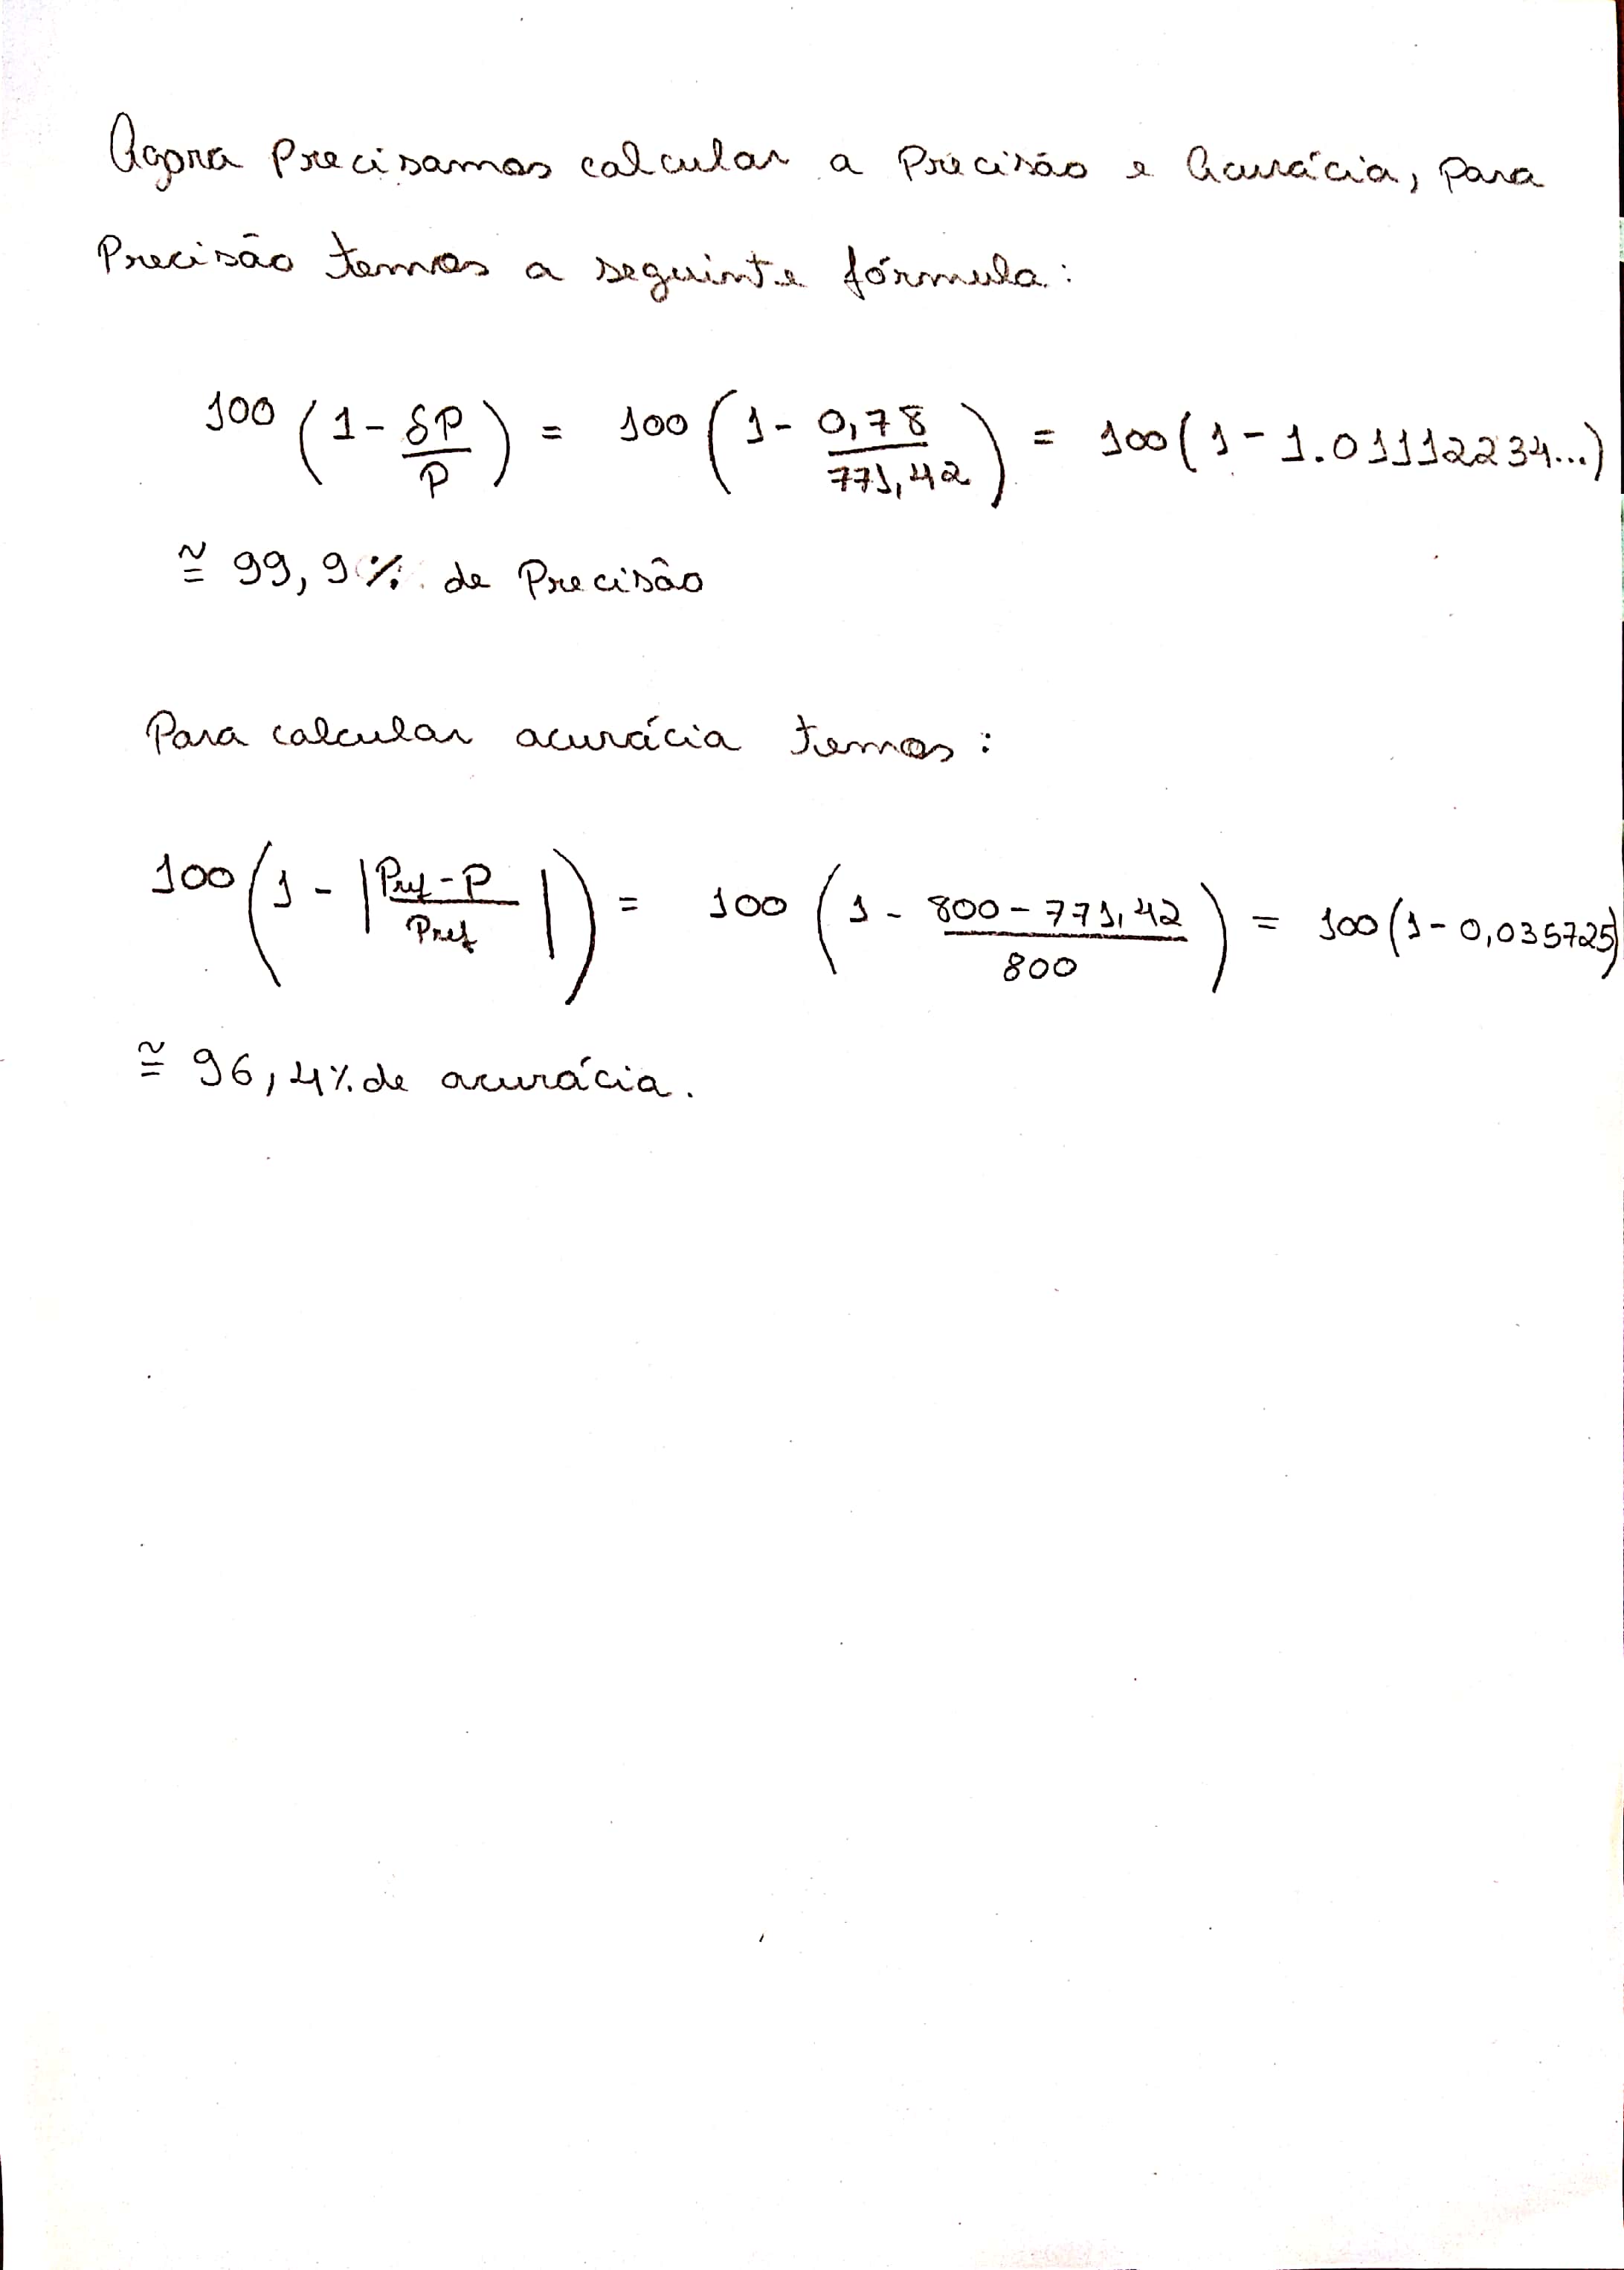 Agora Precisamos calcular a Precisão e Acurácia, Para
Precisão temos a seguinte fórmula:
100 (1 - δP/P) = 100 (1 - 0,78/771,42) = 100 (1 - 1.01112234...)
≅ 99,9% de Precisão
Para calcular acurácia temos:
100 (1 - |Pref - P/Pref|) = 100 (1 - 800 - 771,42/800) = 100 (1 - 0,035725)
≅ 96,4% de acurácia.